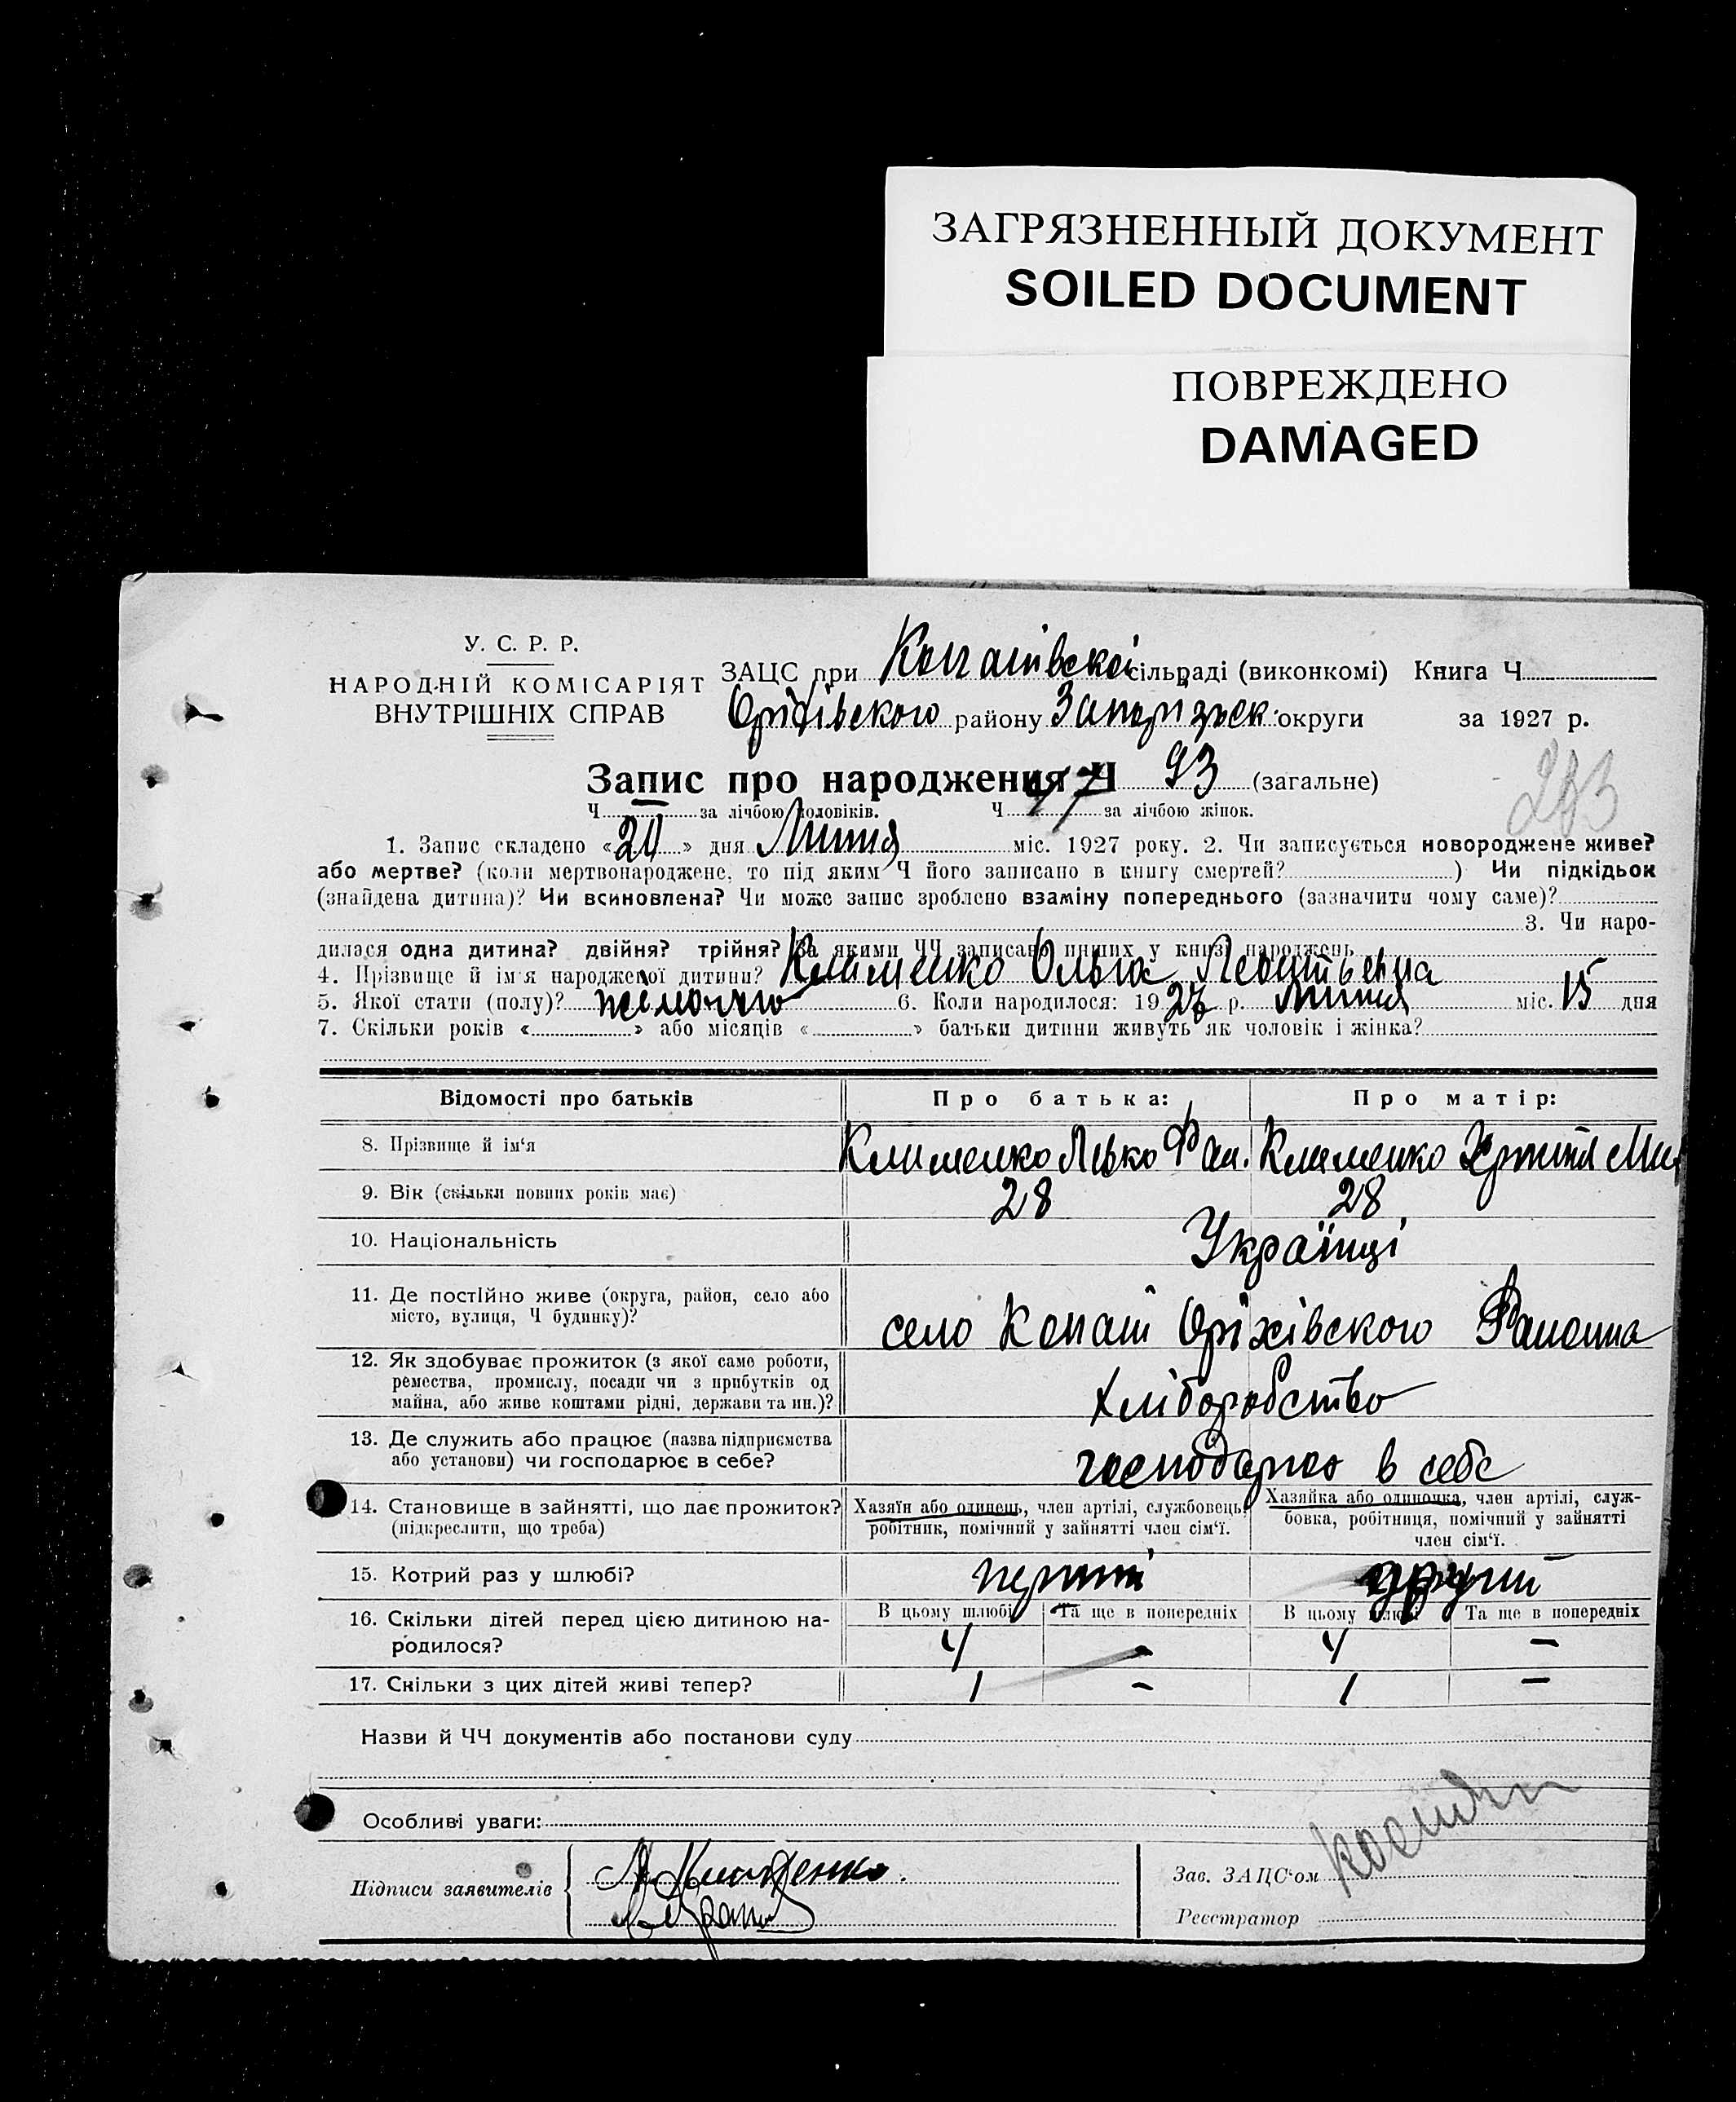 ЗАГРЯЗНЕННЫЙ ДОКУМЕНТ
SOILED DOCUMENT
ПОВРЕЖДЕНО
DAMAGED
У. С. Р. Р.
НАРОДНІЙ КОМІСАРІЯТ
ВНУТРІШНІХ СПРАВ
ЗАЦС при Копанівской сільраді (виконкомі) Книга Ч
Оріхівского району Запоріжск. округи за 1927 р.
Запис про народження Ч 93 (загальне)
283
Ч за лічбою чоловіків. Ч 47 за лічбою жінок.
1. Запис складено « » дня Липня міс. 1927 року. 2. Чи записується новороджене живе?
або мертве? (коли мертвонароджене, то під яким Ч його записано в книгу смертей? ) Чи підкідьок
(знайдена дитина)? Чи всиновлена? Чи може запис зроблено взаміну попереднього (зазначити чому саме)?
3. Чи наро-
дилася одна дитина? двійня? трійня? За якими ЧЧ записано инших у книзі народжень
4. Прізвище й ім'я народженої дитини? Клименко Ольга
5. Якої стати (полу)? жіночго 6. Коли народилося: 1927 р. Липня міс. 15 дня
7. Скільки років « » або місяців « » батьки дитини живуть як чоловік і жінка?
Відомості про батьків Про батька: Про матір:
8. Прізвище й ім'я Клименко Лько Фан. Клименко Христия Мих
9. Вік (скільки повних років має) 28 28
10. Національність Українці
11. Де постійно живе (округа, район, село або
місто, вулиця, Ч будинку)? село Копані Оріхівского Району
12. Як здобуває прожиток (з якої саме роботи,
ремества, промислу, посади чи з прибутків од
майна, або живе коштами рідні, держави та ин.)? хліборобство
13. Де служить або працює (назва підприємства
або установи) чи господарює в себе? господарює в себе
14. Становище в зайнятті, що дає прожиток?
(підкреслити, що треба)
Хазяїн або одинець, член артілі, службовець,
робітник, помічний у зайнятті член сім'ї.
Хазяйка або одиночка, член артілі, служ-
бовка, робітниця, помічний у зайнятті
член сім'ї.
15. Котрий раз у шлюбі? перший другий
16. Скільки дітей перед цією дитиною на-
родилося?
В цьому шлюбі Та ще в попередніх В цьому шлюбі Та ще в попередніх
4 - 4 -
17. Скільки з цих дітей живі тепер? 1 - 1 -
Назви й ЧЧ документів або постанови суду
Особливі уваги:
Підписи заявителів Клименко.
Зав. ЗАЦС'ом
Реєстратор